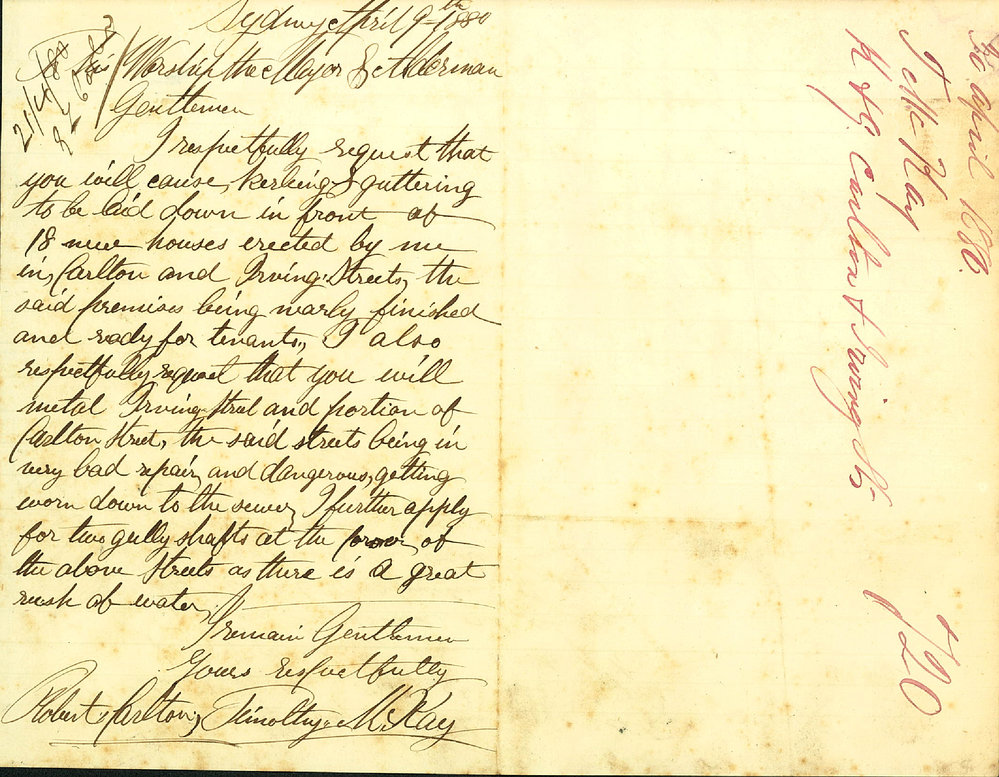 Sydney April 9th 1880
His Worship the Mayor & Alderman
Gentlemen
I respectfully request that
you will cause, kerbing & guttering
to be laid down in front of
18 new houses erected by me
in, Carlton and Irving Streets, the
said premises being nearly finished
and ready for tenants, I also
respectfully request that you will
metal Irving Street and portion of
Carlton Street, the said streets being in
very bad repair, and dangerous, getting
worn down to the sewer, I further apply
for two gully shafts at the of
the above Streets as there is a great
rush of water,
I remain Gentlemen
Yours respectfully
Robert & Carlton, Timothy McKay
21/4/80
April 1880.
T McKay
K & G. Carlton & Irving Sts